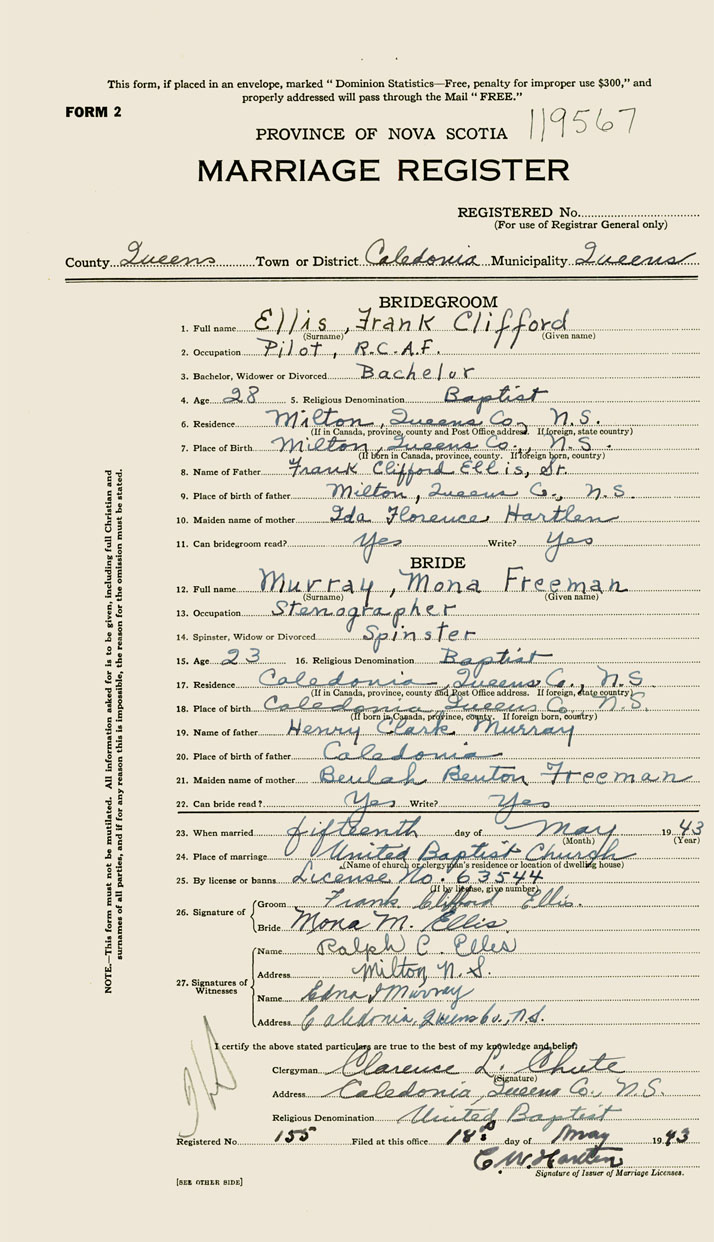 This form, if placed in an envelope, marked “ Dominion Statistics—Free, penalty for improper use $300,” and
properly addressed will pass through the Mail “ FREE.”
FORM 2
PROVINCE OF NOVA SCOTIA 119567
MARRIAGE REGISTER
REGISTERED No.
(For use of Registrar General only)
County Queens Town or District Caledonia Municipality Queens
BRIDEGROOM
1. Full name Ellis, Frank Clifford
(Surname) (Given name)
2. Occupation Pilot, R.C.A.F.
3. Bachelor, Widower or Divorced Bachelor
4. Age 28 5. Religious Denomination Baptist
6. Residence Milton, Queens Co., N.S.
(If in Canada, province, county and Post Office address. If foreign, state country)
7. Place of Birth Milton, Queens Co., N.S.
(If born in Canada, province, county. If foreign born, country)
8. Name of Father Frank Clifford Ellis, Sr.
9. Place of birth of father Milton, Queens Co., N.S.
10. Maiden name of mother Ida Florence Hartlen
11. Can bridegroom read? Yes Write? Yes
BRIDE
12. Full name Murray, Mona Freeman
(Surname) (Given name)
13. Occupation Stenographer
14. Spinster, Widow or Divorced Spinster
15. Age 23 16. Religious Denomination Baptist
17. Residence Caledonia, Queens Co., N.S.
(If in Canada, province, county and Post Office address. If foreign, state country)
18. Place of birth Caledonia, Queens Co., N.S.
(If born in Canada, province, county. If foreign born, country)
19. Name of father Henry Clark Murray
20. Place of birth of father Caledonia
21. Maiden name of mother Beulah Benton Freeman
22. Can bride read? Yes Write? Yes
23. When married fifteenth day of May 1943
(Month) (Year)
24. Place of marriage United Baptist Church
(Name of church or clergyman's residence or location of dwelling house)
25. By license or banns License No. 63544
(If by license, give number)
26. Signature of Groom Frank Clifford Ellis.
Bride Mona M. Ellis.
27. Signatures of Witnesses Name Ralph C. Elles
Address Milton N.S.
Name Edna I Murray
Address Caledonia, Queens Co., N.S.
I certify the above stated particulars are true to the best of my knowledge and belief;
Clergyman Clarence L. Chute
(Signature)
Address Caledonia, Queens Co., N.S.
Religious Denomination United Baptist
Registered No. 155 Filed at this office 18th day of May 1943
C. W.
Signature of Issuer of Marriage Licenses.
[SEE OTHER SIDE]
NOTE.—This form must not be mutilated. All information asked for is to be given, including full Christian and
surnames of all parties, and if for any reason this is impossible, the reason for the omission must be stated.